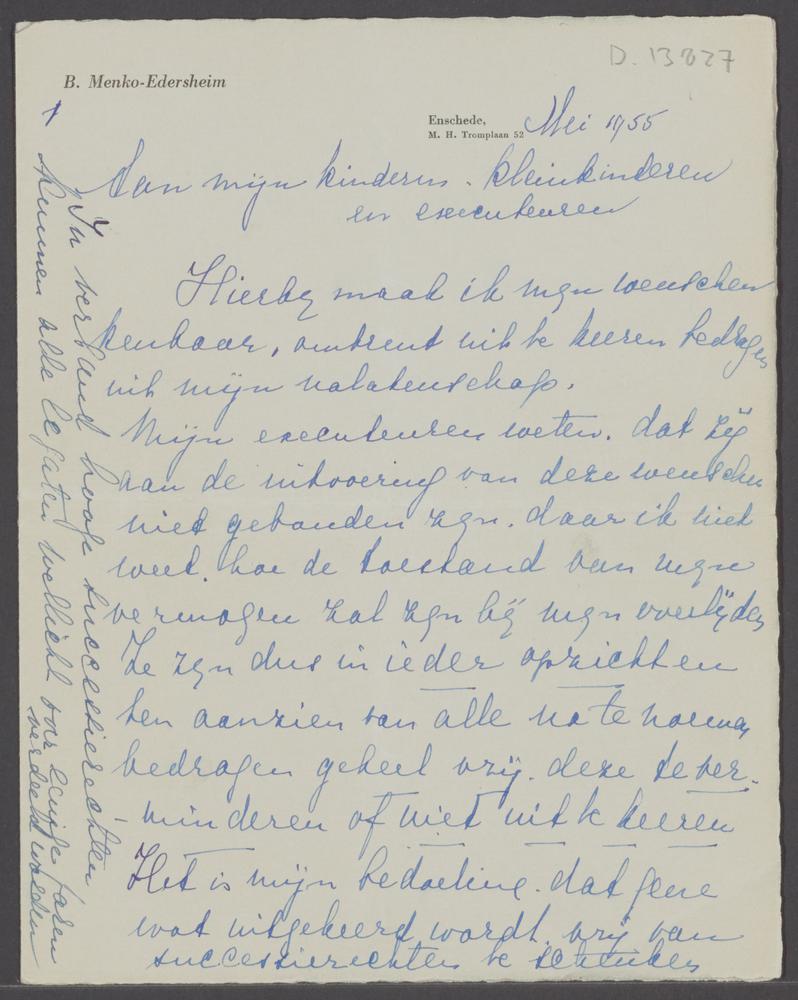 D. 13827
B. Menko-Edersheim
Enschede,
M. H. Tromplaan 52
Mei 1955
Aan mijn kinderen. kleinkinderen
en executeuren
Hierbij maak ik mijn wenschen
kenbaar, omtrent uit te keeren bedragen
uit mijn nalatenschap.
Mijn executeuren weten. dat zij
aan de uitvoering van deze wenschen
niet gebonden zijn. daar ik niet
weet. hoe de toestand van mijn
vermogen zal zijn bij mijn overlijden
Ze zijn dus in ieder opzicht en
ten aanzien van alle na te noemen
bedragen geheel vrij. deze te ver-
- minderen of niet uit te keeren
Het is mijn bedoeling. dat gene
wat uitgekeerd wordt. vrij van
successierechten te schenken
In verband hooge successierechten
kunnen alle legaten wellicht over eenige jaren
verdeeld worden